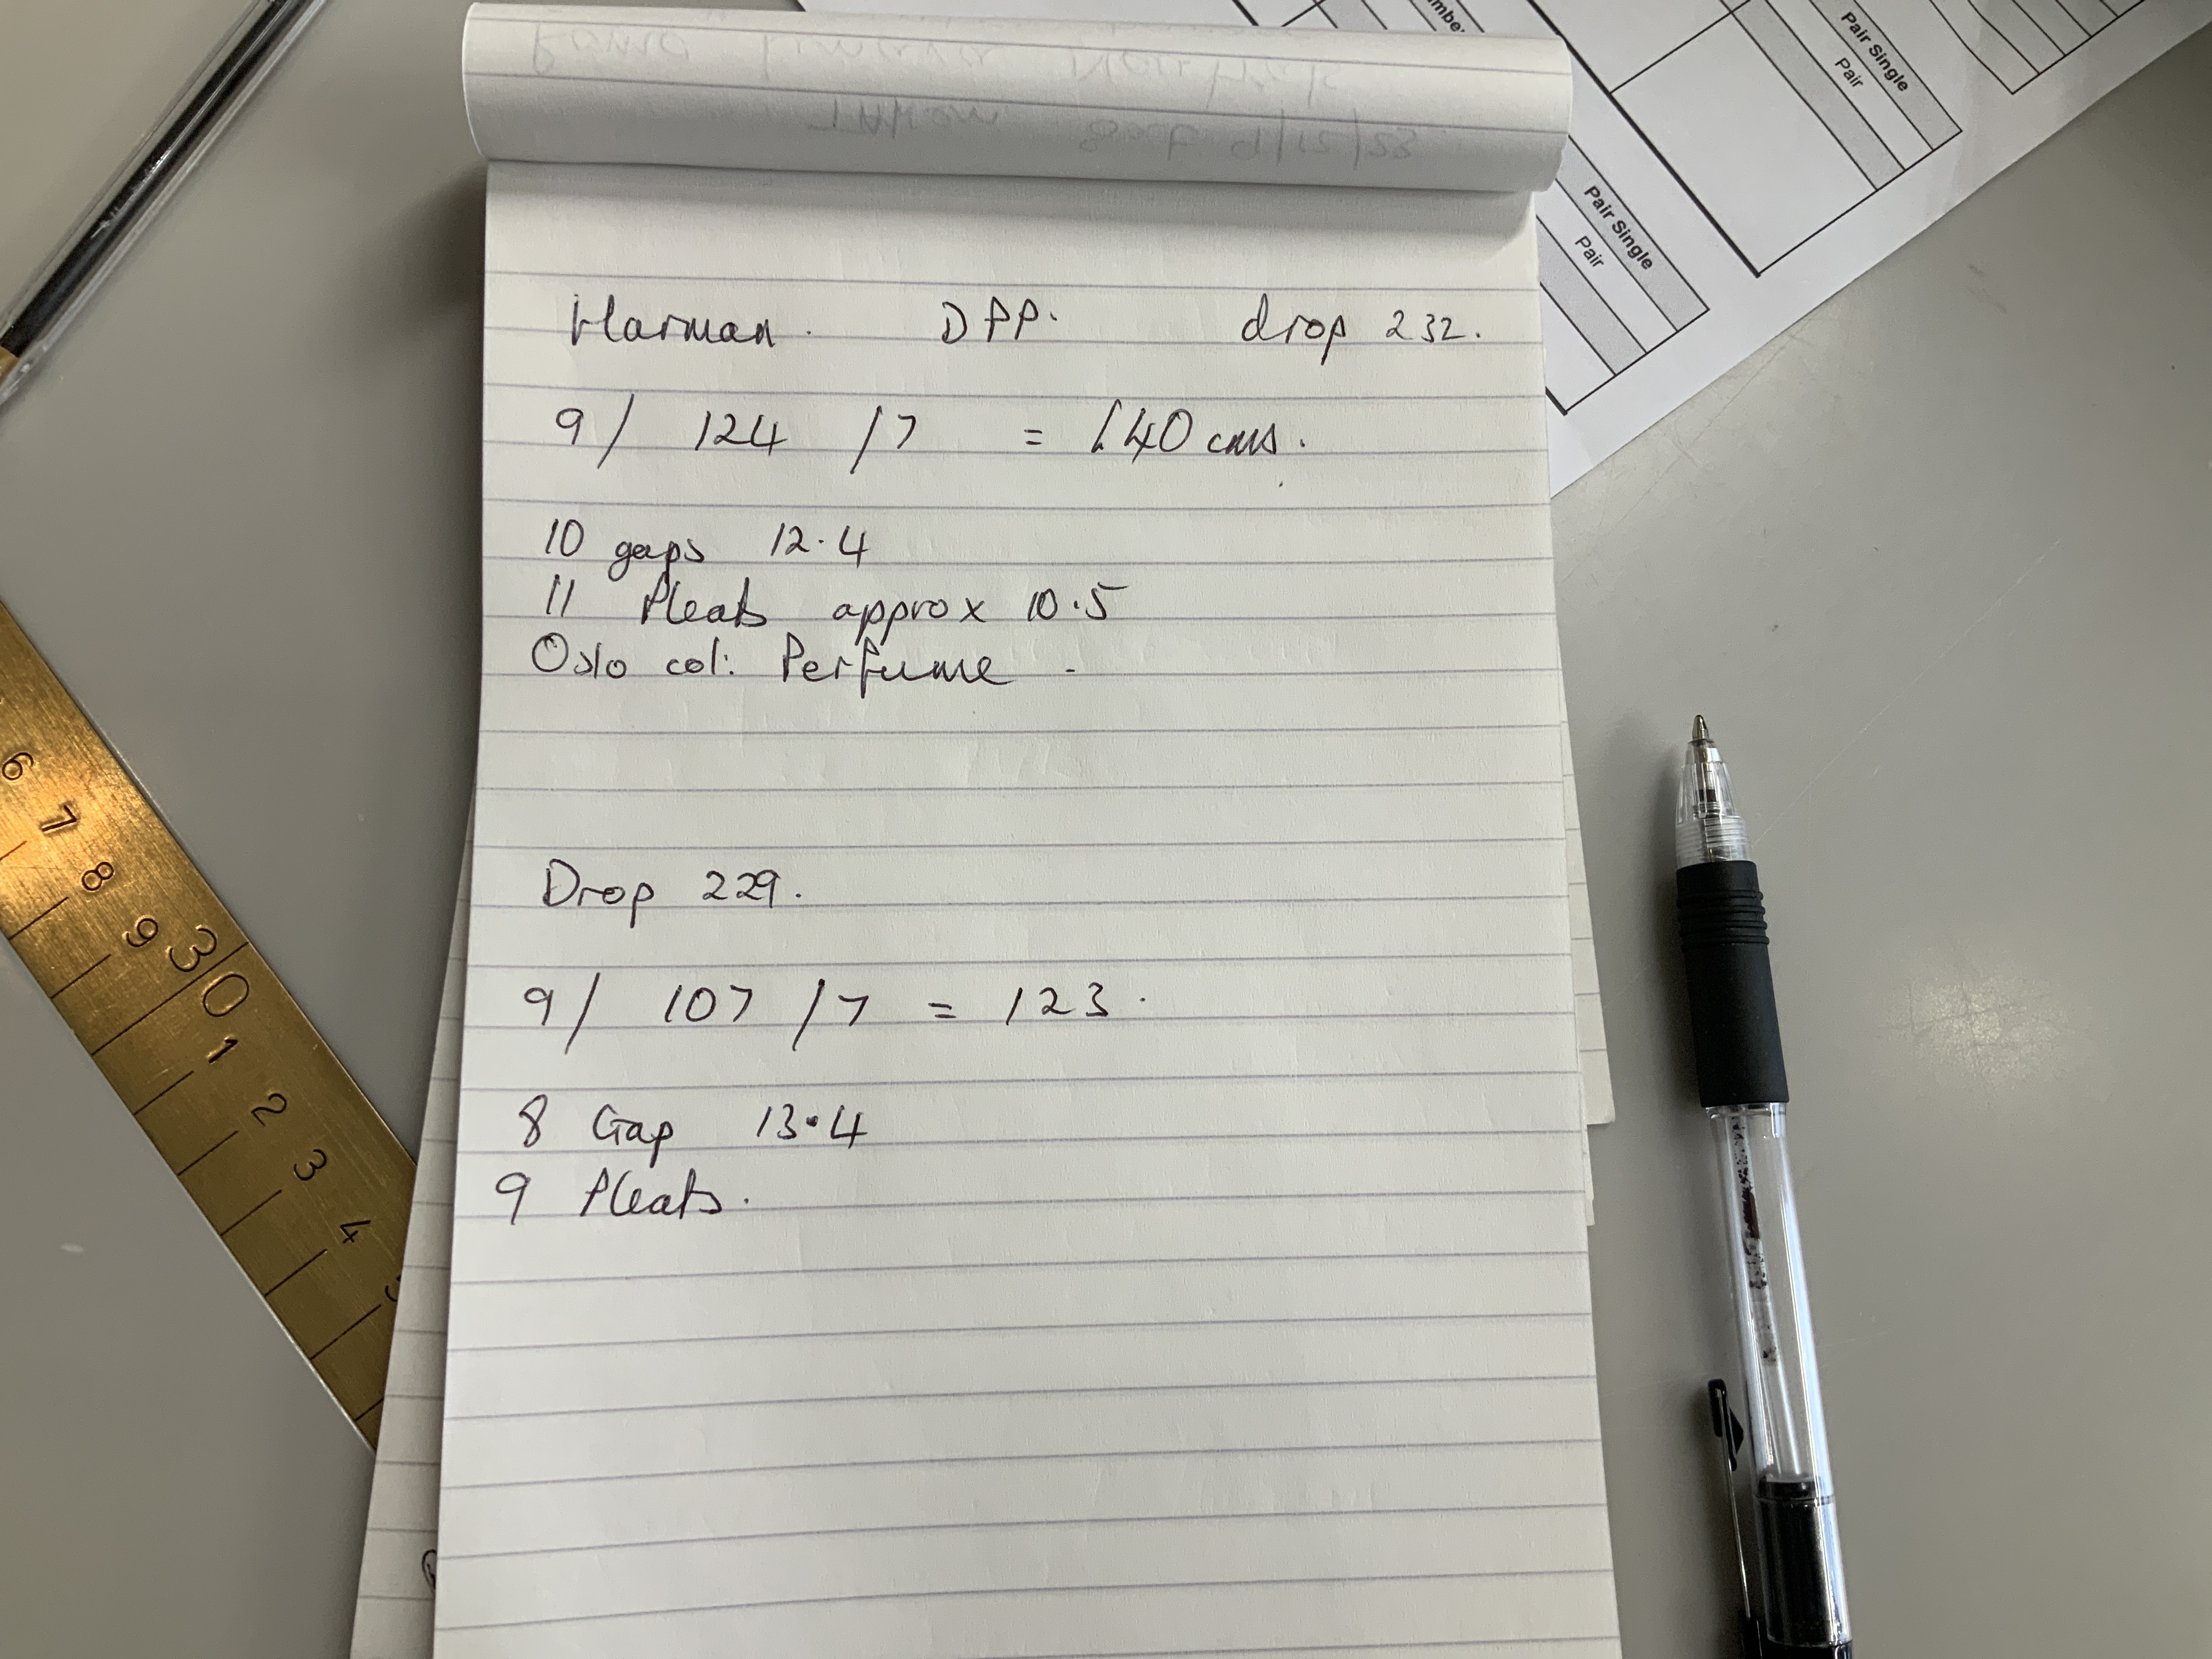 Pair Single
Pair
Pair Single
Pair
Harman. DPP. drop 232.
9/ 124 /7 = 140 cms.
10 gaps 12.4
11 Pleats approx 10.5
Oslo col: Perfume -
Drop 229.
9/ 107 /7 = 123.
8 Gap 13.4
9 Pleats.
6
7
8
9
30
1
2
3
4